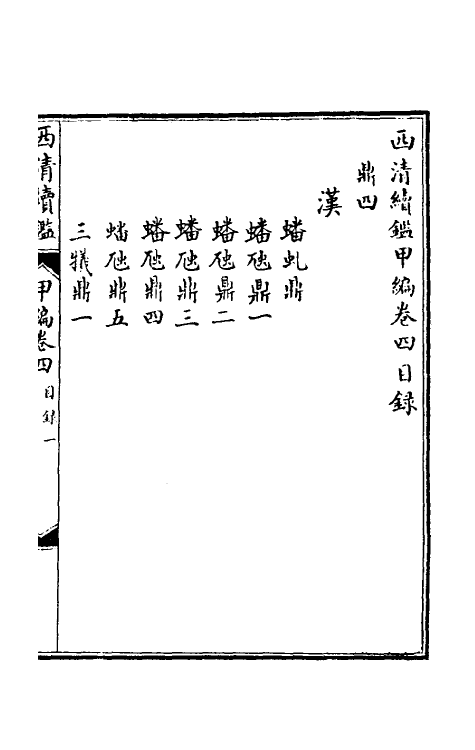 西清續鑑甲編卷四目録
鼎四
漢
蟠虬鼎
蟠虺鼎一
蟠虺鼎二
蟠虺鼎三
蟠虺鼎四
蟠虺鼎五
三犧鼎一
西清續鑑 甲編卷四 目録 一